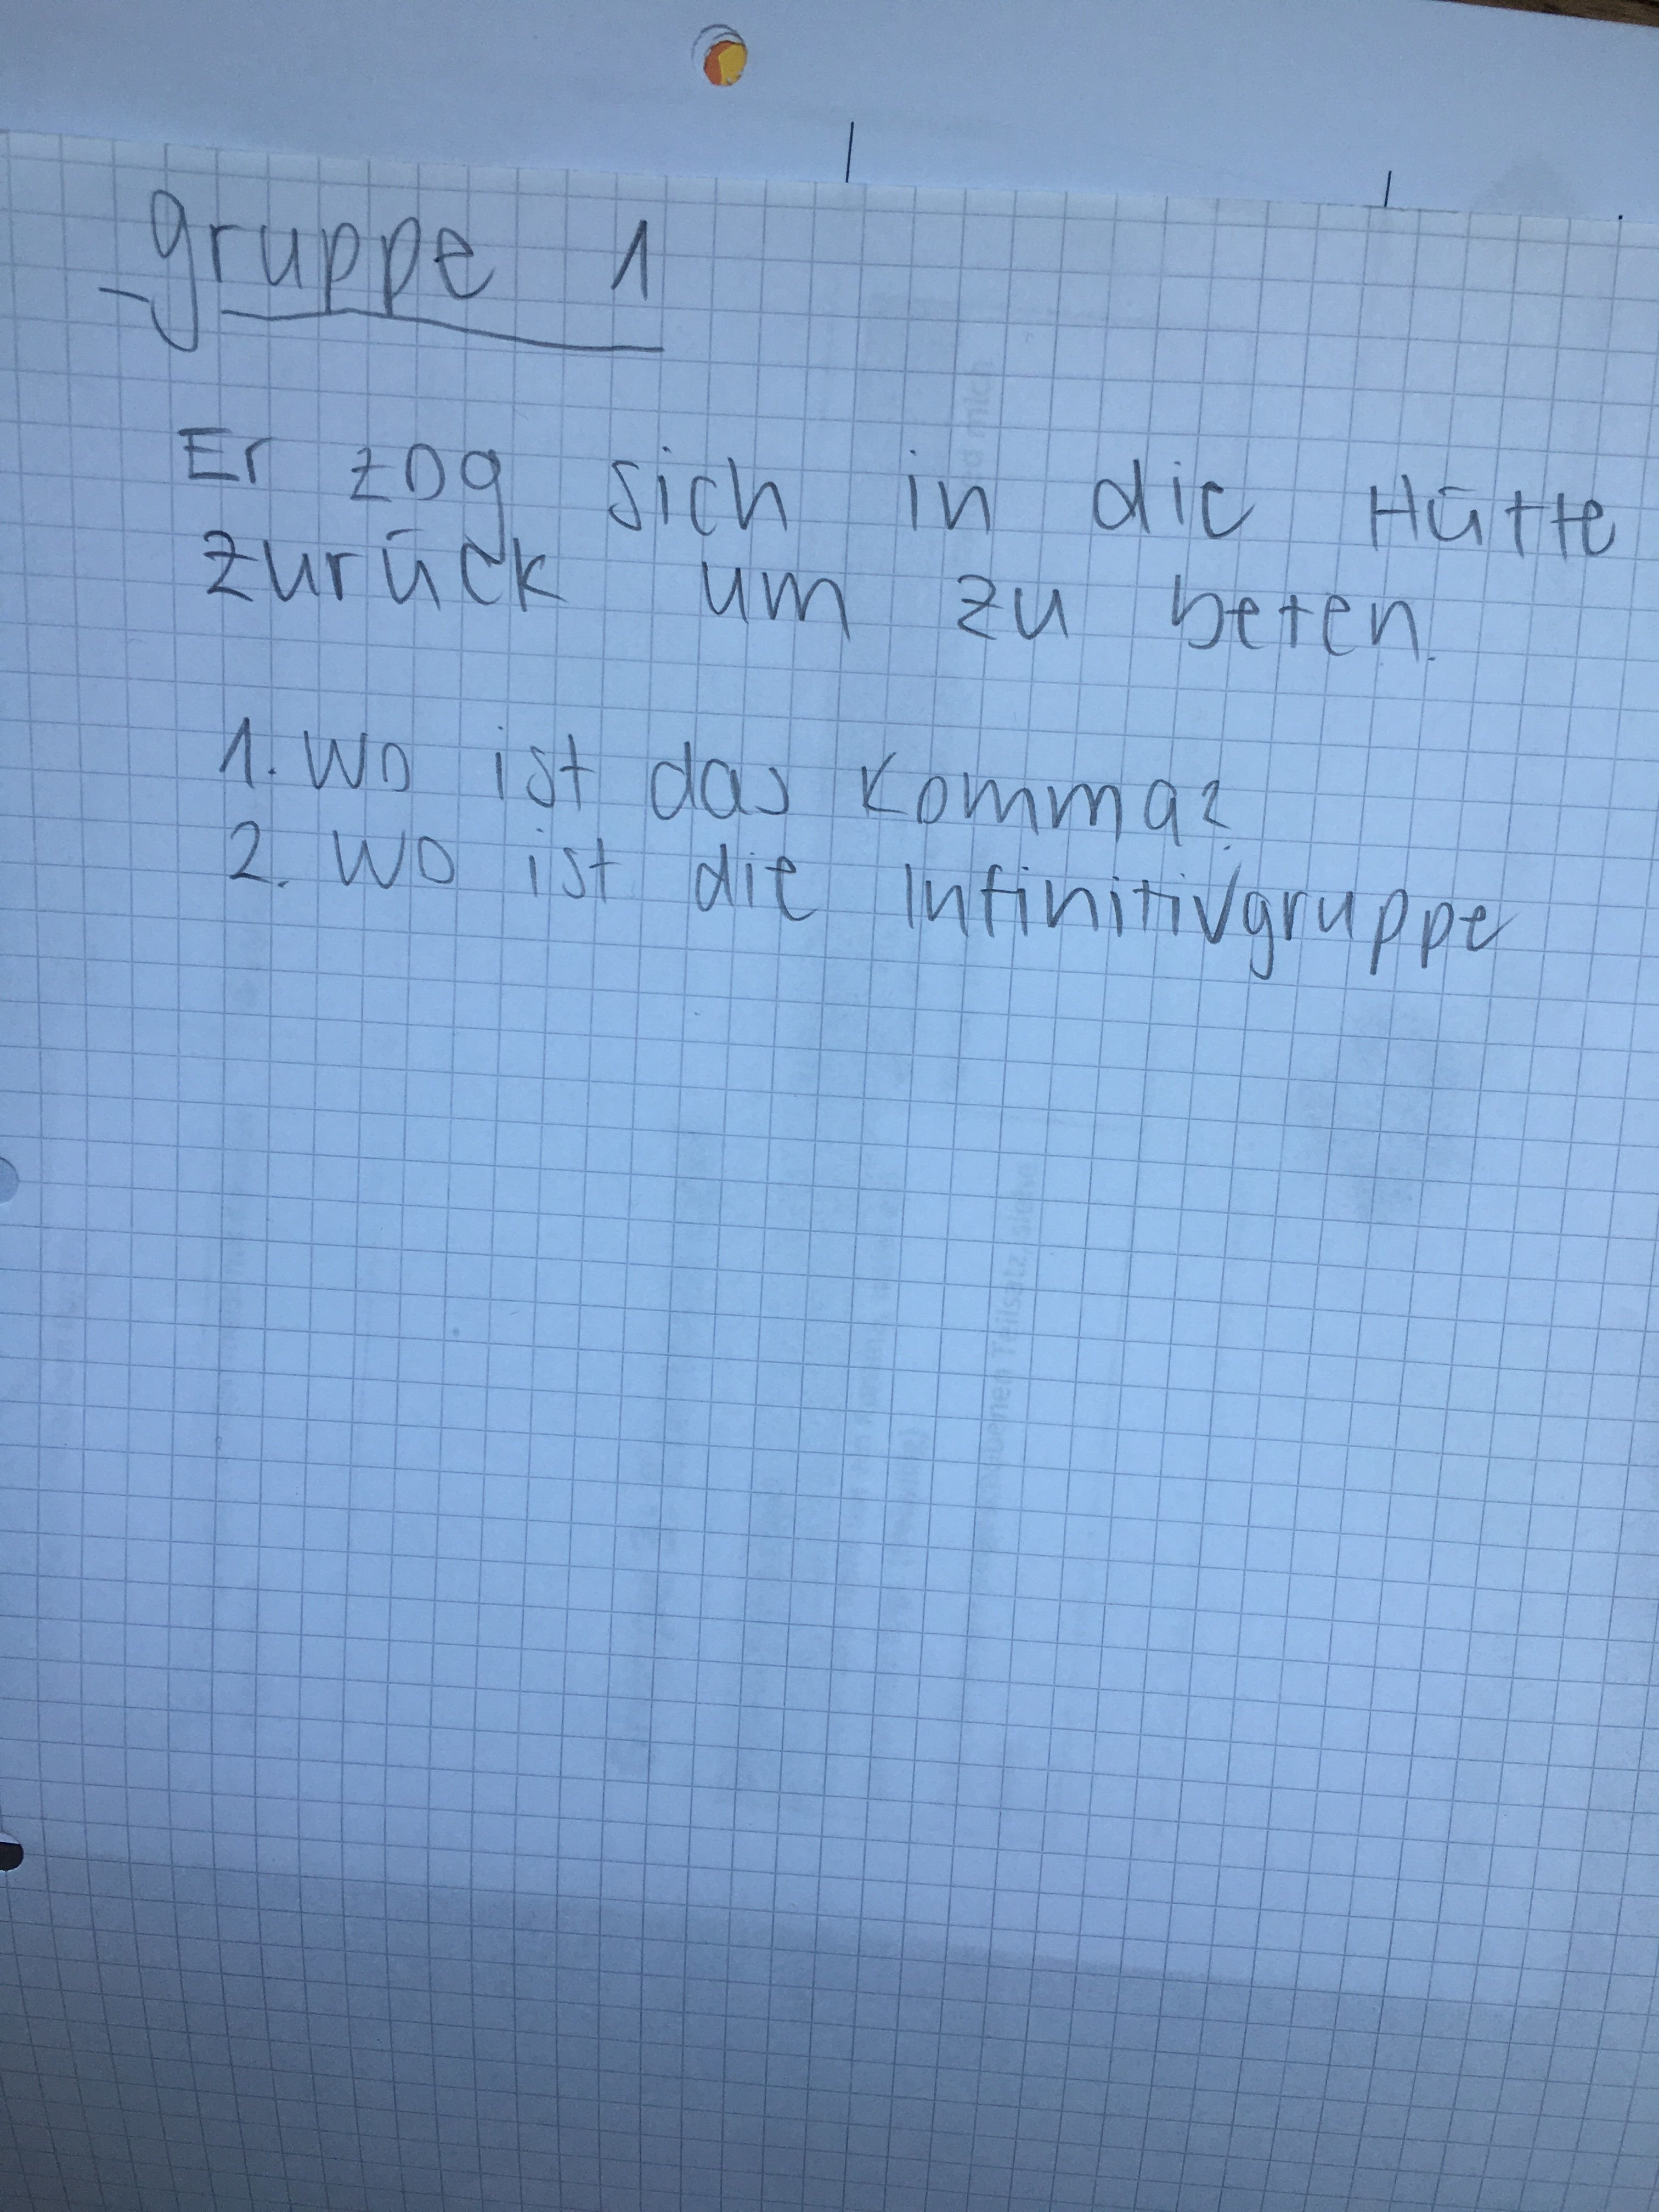 gruppe 1
Er zog sich in die Hütte
zurück um zu beten.
1. Wo ist das Komma?
2. Wo ist die Infinitivgruppe